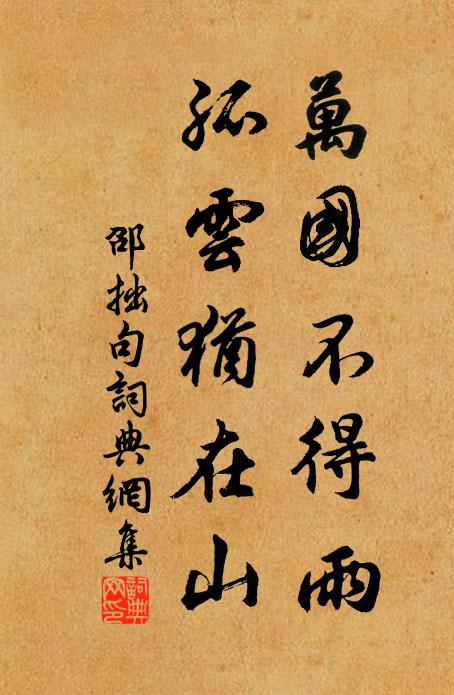 萬國不得雨
孤雲猶在山
邵拙句詞典網集
詞典網印